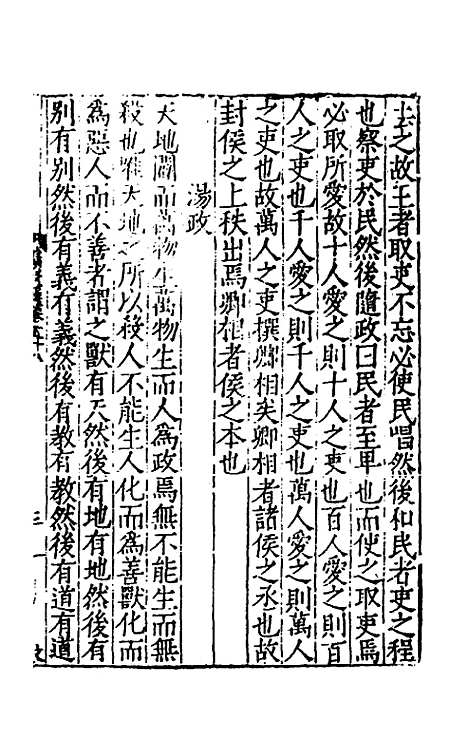 士之故王者取吏不忘必使民唱然後和民者吏之程
也察吏於民然後隨政曰民者至卑也而使之取吏焉
必取所愛故十人愛之則十人之吏也百人愛之則百
人之吏也千人愛之則千人之吏也萬人愛之則萬人
之吏也故萬人之吏撰卿相矣卿相者諸侯之丞也故
封侯之上秩出焉卿相者侯之本也
湯政
天地闢而萬物生萬物生而人為政焉無不能生而無
殺也唯天地之所以殺人不能生人化而為善獸化而
為惡人而不善者謂之獸有天然後有地有地然後有
別有別然後有義有義然後有教有教然後有道有道
三